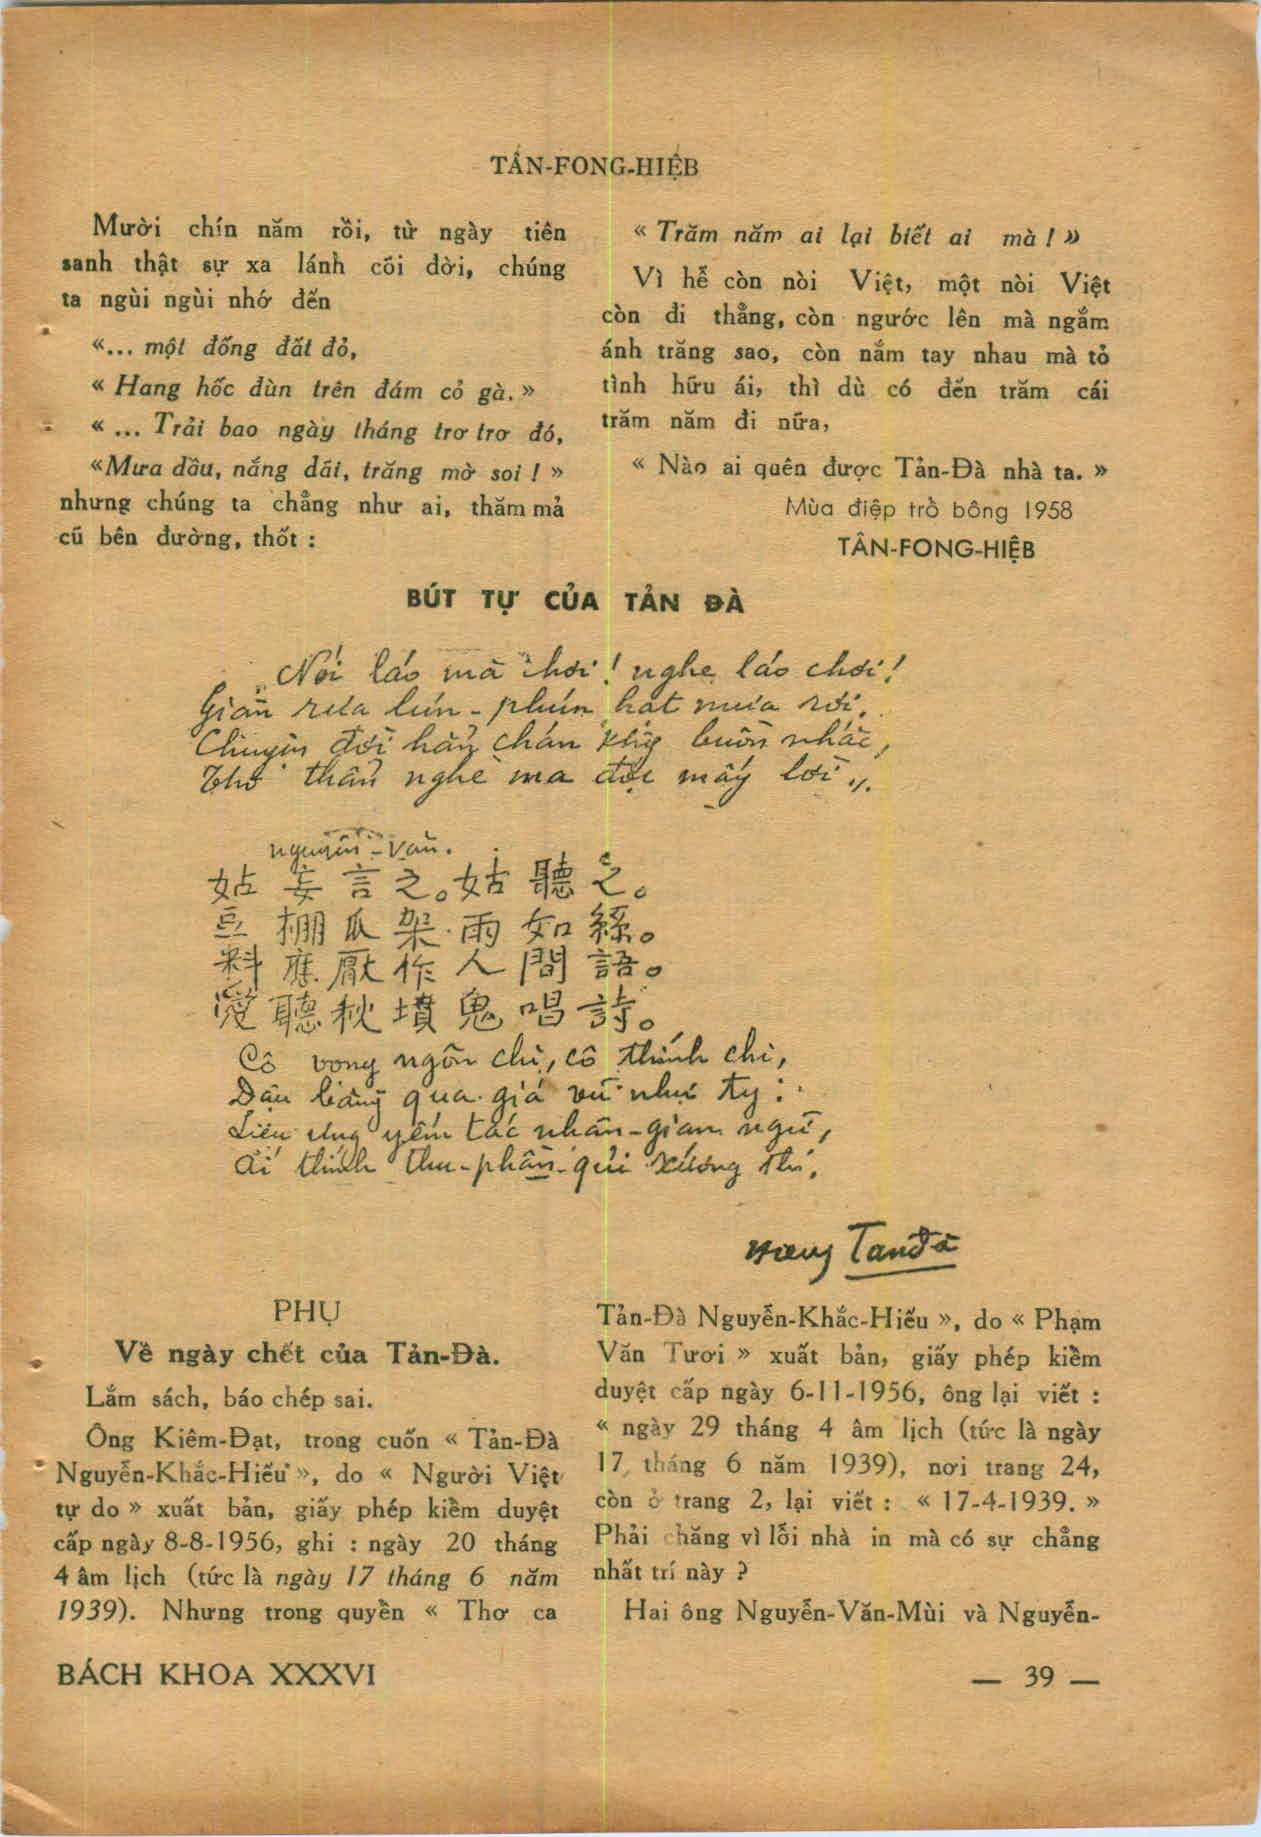 TÂN-FONG-HIỆB
Mười chín năm rồi, từ ngày tiên
sanh thật sự xa lánh cõi đời, chúng
ta ngùi ngùi nhớ đến
«... một đống đất đỏ,
« Hang hốc đùn trên đám cỏ gà. »
« ... Trải bao ngày tháng trơ trơ đó,
«Mưa dầu, nắng dãi, trăng mờ soi ! »
nhưng chúng ta chẳng như ai, thăm mả
cũ bên đường, thốt :
« Trăm năm ai lại biết ai mà ! »
Vì hễ còn nòi Việt, một nòi Việt
còn đi thẳng, còn ngước lên mà ngắm
ánh trăng sao, còn nắm tay nhau mà tỏ
tình hữu ái, thì dù có đến trăm cái
trăm năm đi nữa,
« Nào ai quên được Tản-Đà nhà ta. »
Mùa điệp trổ bông 1958
TÂN-FONG-HIỆB
BÚT TỰ CỦA TẢN ĐÀ
Nói láo mà chơi ! nghe láo chơi !
Giàn dưa lún-phún hạt mưa rơi.
Chuyện đời hẳn chán không buồn nhắc,
Thơ thẩn nghe ma đọc mấy lời
nguyên-văn.
姑妄言之。姑聽之。
豆棚瓜架雨如絲。
料應厭作人間語。
愛聽秋墳鬼唱詩。
Cô vọng ngôn chi, cô thính chi,
Đậu bằng qua giá vũ như ty :
Liệu ưng yếm tác nhân-gian ngữ,
Ái thính thu-phần quỉ xướng thi.
Tản Đà
PHỤ
Về ngày chết của Tản-Đà.
Lắm sách, báo chép sai.
Ông Kiêm-Đạt, trong cuốn « Tản-Đà
Nguyễn-Khắc-Hiếu », do « Người Việt
tự do » xuất bản, giấy phép kiểm duyệt
cấp ngày 8-8-1956, ghi : ngày 20 tháng
4 âm lịch (tức là ngày 17 tháng 6 năm
1939). Nhưng trong quyển « Thơ ca
Tản-Đà Nguyễn-Khắc-Hiếu », do « Phạm
Văn Tươi » xuất bản, giấy phép kiểm
duyệt cấp ngày 6-11-1956, ông lại viết :
« ngày 29 tháng 4 âm lịch (tức là ngày
17 tháng 6 năm 1939), nơi trang 24,
còn ở trang 2, lại viết : « 17-4-1939. »
Phải chăng vì lỗi nhà in mà có sự chẳng
nhất trí này ?
Hai ông Nguyễn-Văn-Mùi và Nguyễn-
BÁCH KHOA XXXVI
— 39 —